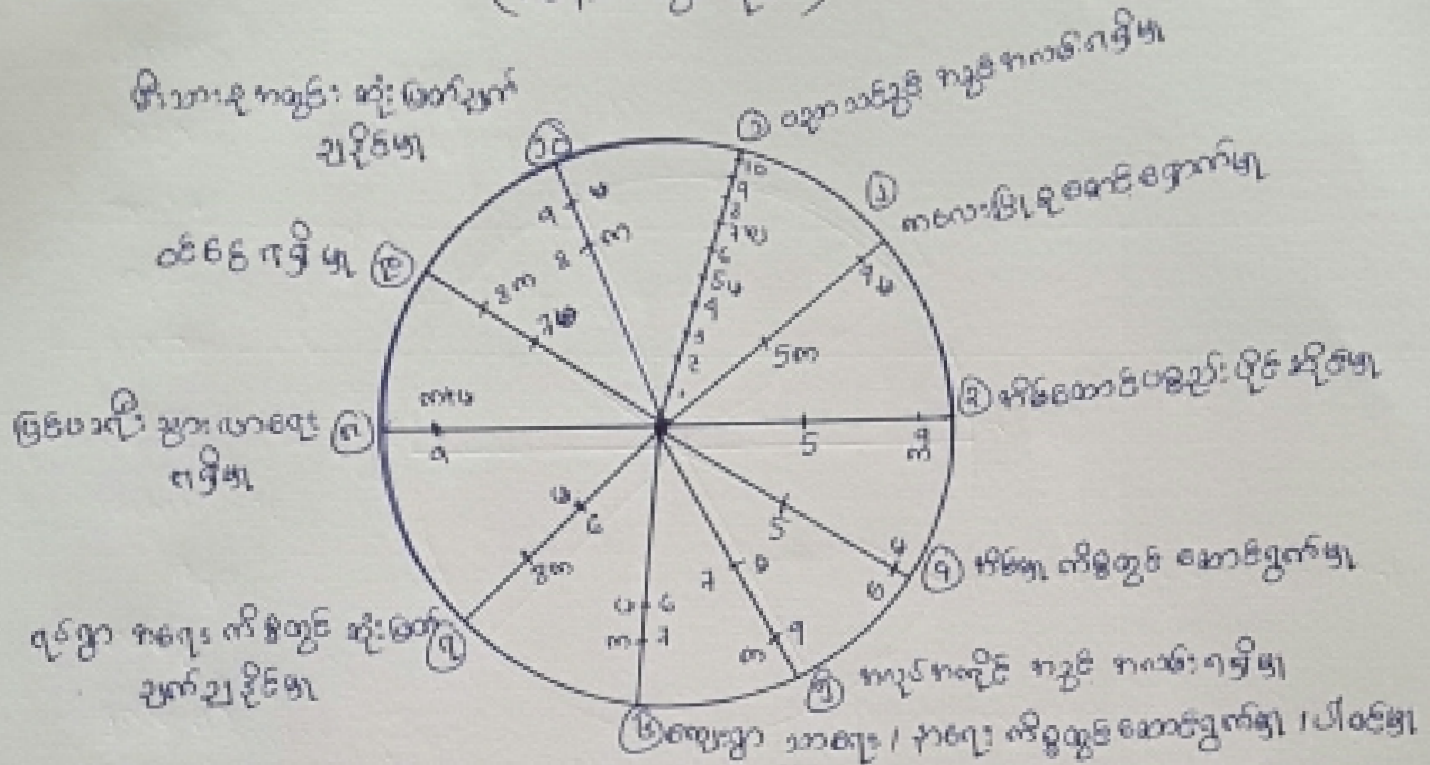 မိသားစုအတွင်း ဆုံးဖြတ်ချက်
ချနိုင်မှု
၁၀
၁ ပညာသင်ခွင့် အခွင့်အလမ်းရရှိမှု
၂ ကလေးပြုစုစောင့်ရှောက်မှု
၃ အိမ်ထောင်ပစ္စည်း ပိုင်ဆိုင်မှု
၄ အိမ်မှု ကိစ္စတွင် ဆောင်ရွက်မှု
၅ အလုပ်အကိုင် အခွင့် အလမ်းရရှိမှု
၆ ကျေးရွာ သာရေး / နာရေး ကိစ္စတွင် ဆောင်ရွက်မှု / ပါဝင်မှု
၇ ရပ်ရွာ အရေး ကိစ္စတွင် ဆုံးဖြတ်
ချက်ချနိုင်မှု
၈ ပြင်ပခရီး သွားလာရေး
ရရှိမှု
၉ ဝင်ငွေ ရရှိမှု
10
9
8
7
6
5
4
3
2
9
8 က
8 က
7
5 က
5
9
က
5
7
9
က
6
က 7
6
8 က
9